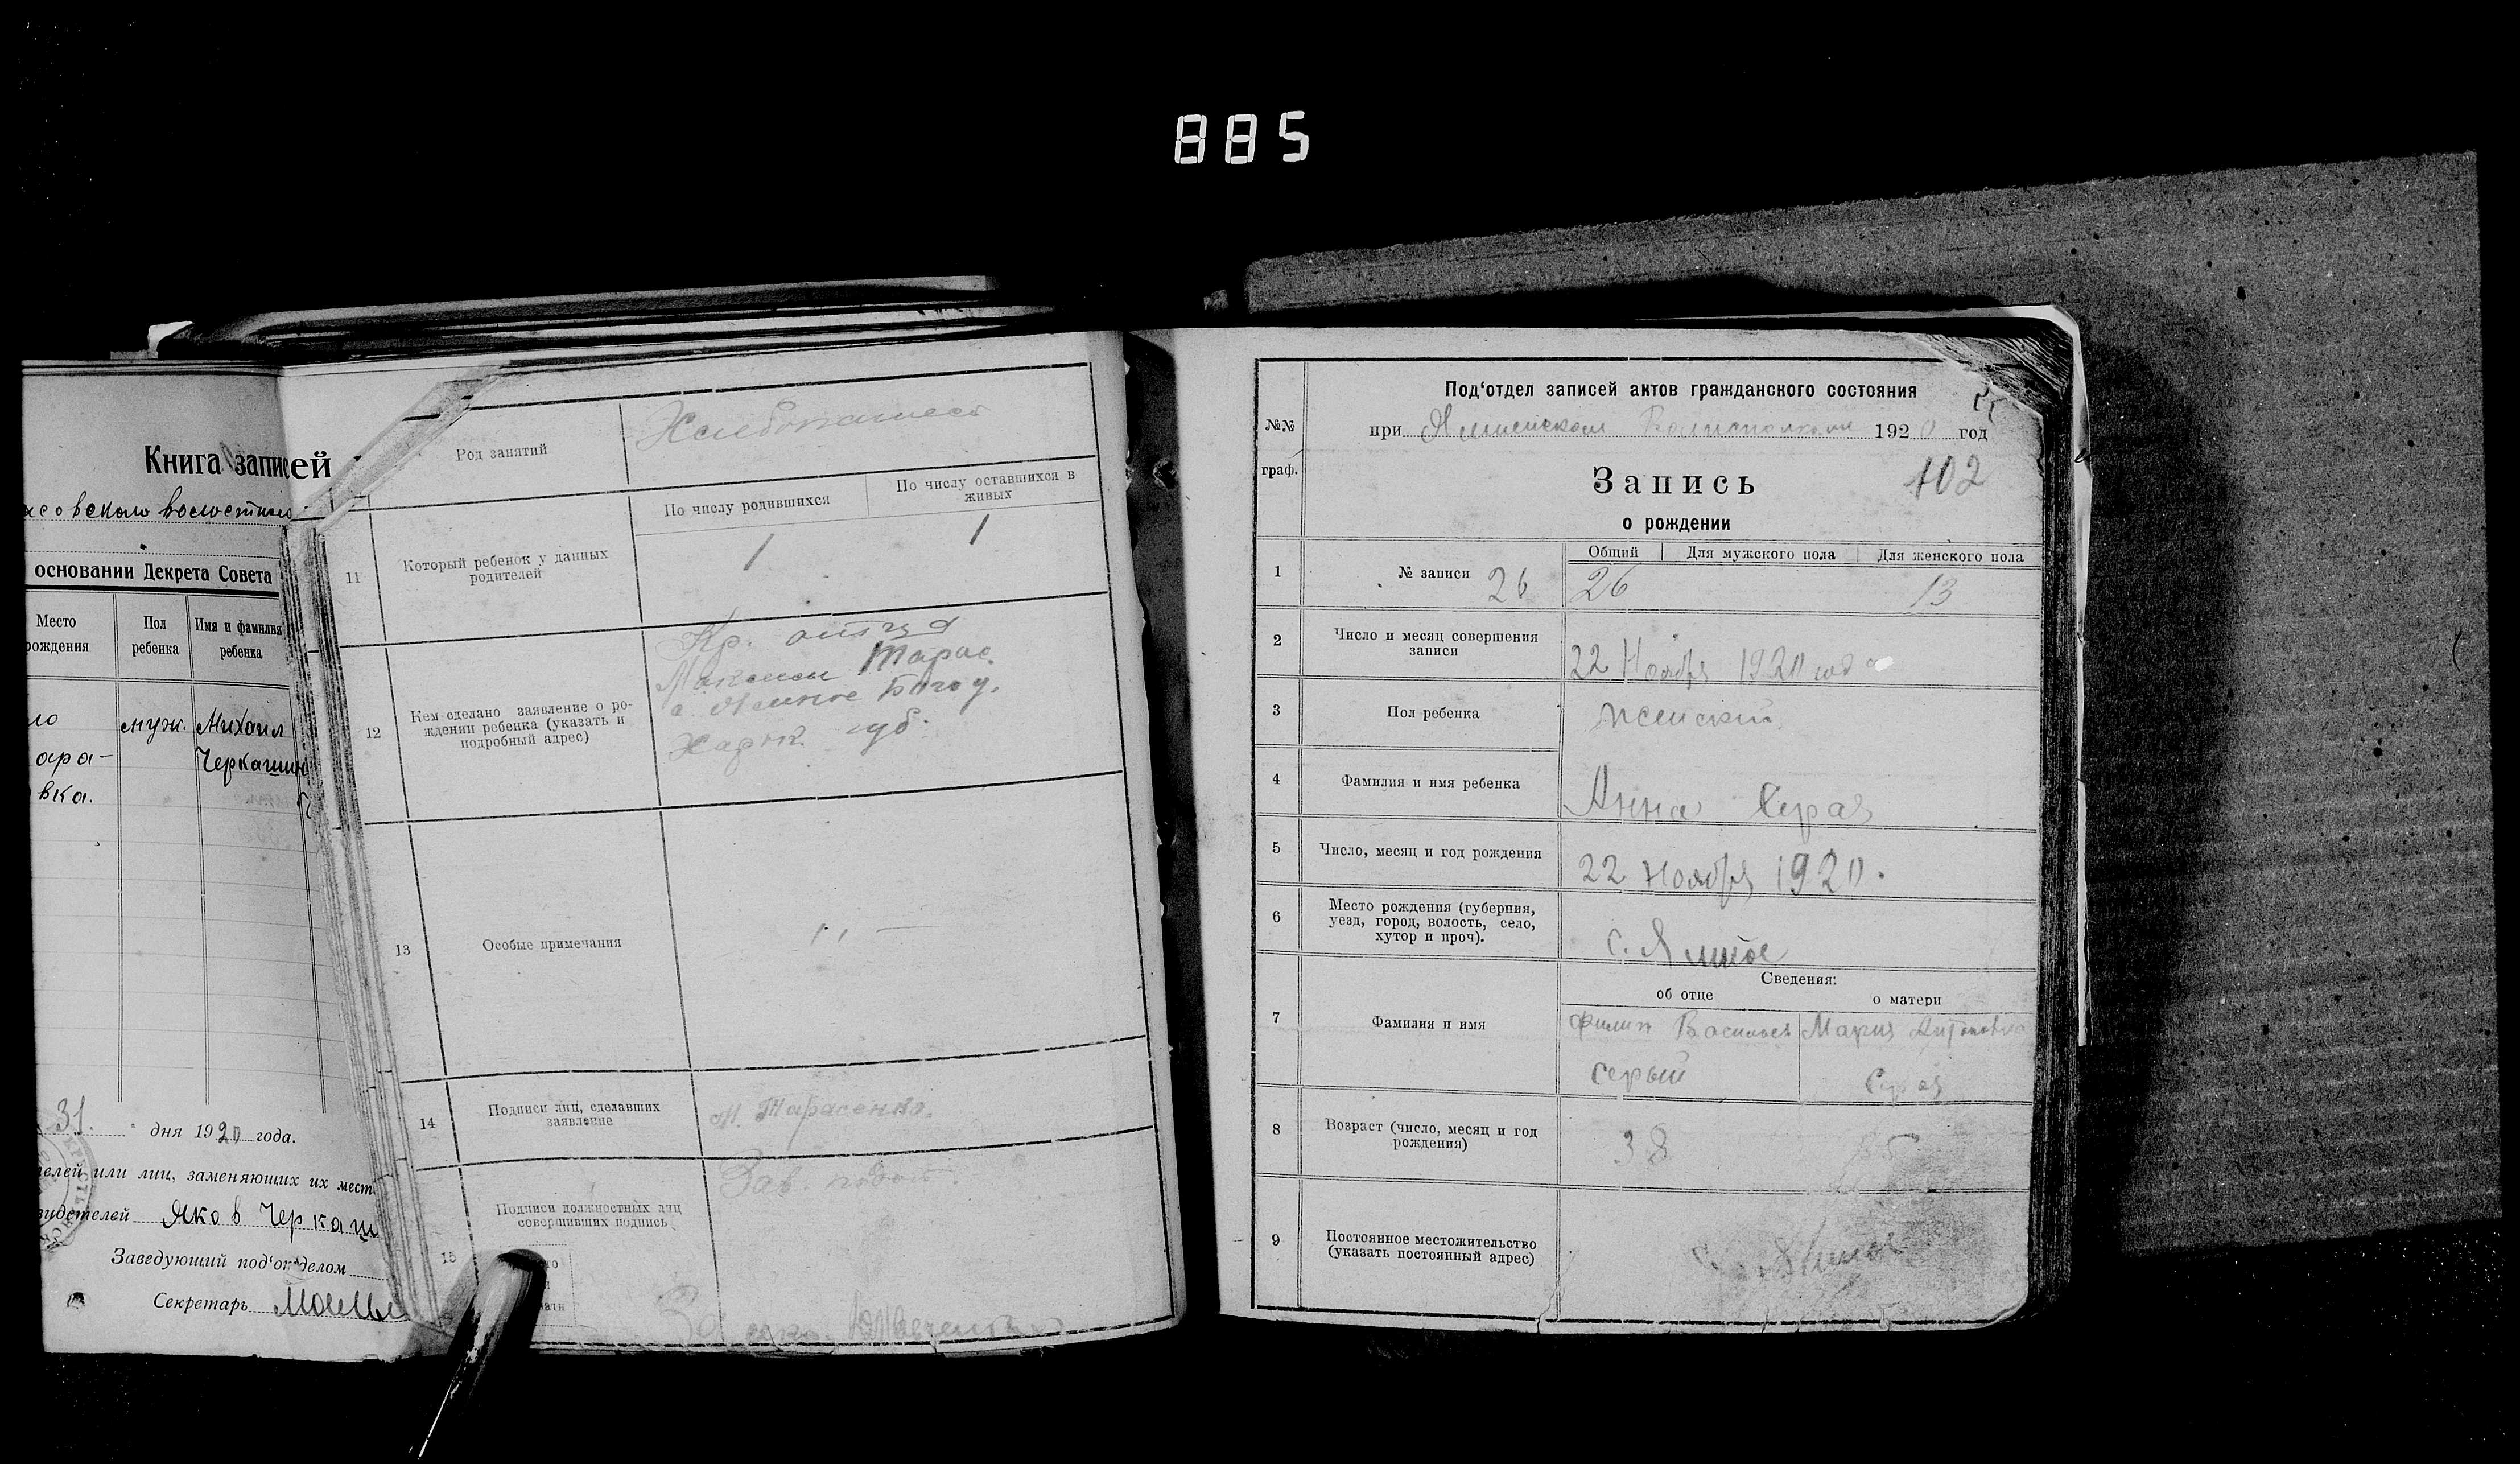 885
Книга записей
волостного
основании Декрета Совета
Место
рождения
Пол
ребенка
Имя и фамилия
ребенка
ло
ара-
вка.
муж.
Михаил
Черкашин
31. дня 1920 года.
телей или лиц, заменяющих их мест
видетелей Яков Черкаш
Заведующий под‘отделом
Секретарь
Род занятий
Хлебопашест
11
Который ребенок у данных
родителей
По числу родившихся
По числу оставшихся в
живых
1
1
12
Кем сделано заявление о ро-
ждении ребенка (указать и
подробный адрес)
Кр. отца
Максим Тарас.
с. Ямное Богод.
Харьк. губ.
13
Особые примечания
14
Подписи лиц, сделавших
заявление
М. Тарасенко.
15
Подписи должностных лиц
совершивших подпись
Зав подот.
№№
граф.
Под‘отдел записей актов гражданского состояния
при Ямненском Волисполкоме 1920 год
102
Запись
о рождении
1
№ записи 26
Общий
Для мужского пола
Для женского пола
26
13
2
Число и месяц совершения
записи
22 Ноября 1920 года
3
Пол ребенка
женский
4
Фамилия и имя ребенка
Анна Серая
5
Число, месяц и год рождения
22 Ноября 1920.
6
Место рождения (губерния,
уезд, город, волость, село,
хутор и проч).
с. Ямное
Сведения:
об отце
о матери
7
Фамилия и имя
Филип Васильев
Серый
Мария Антоновна
Серая
8
Возраст (число, месяц и год
рождения)
38
9
Постоянное местожительство
(указать постоянный адрес)
с. Ямное